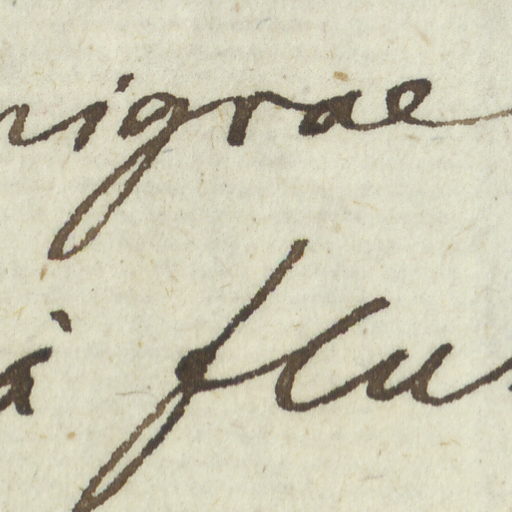 nigrae
à flu